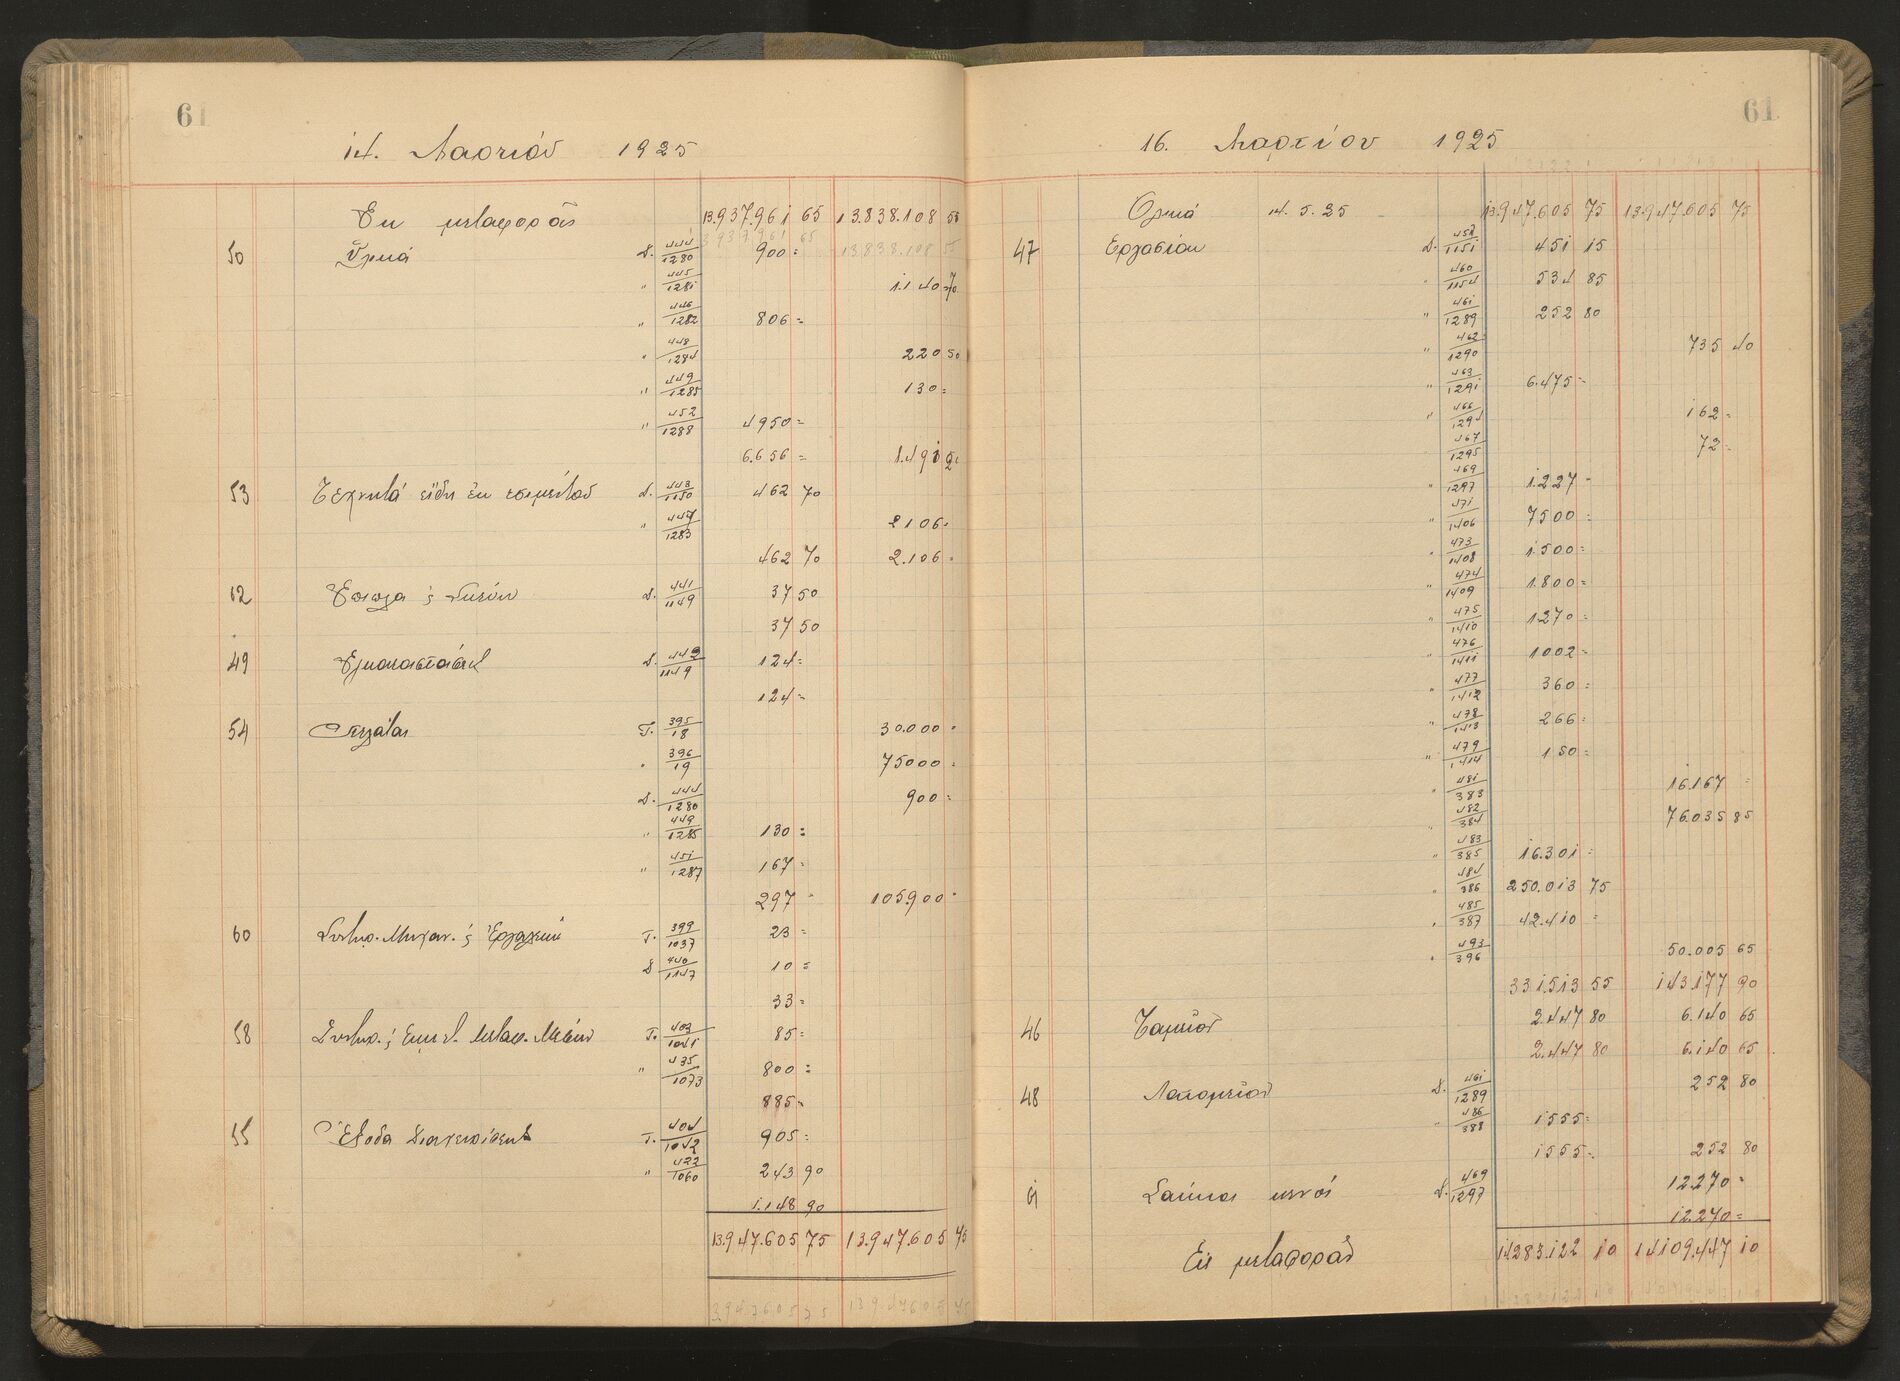 61
14. Μαρτίου 1925
Εκ μεταφοράς 13.937.961 65 13.838.108 55
50 Υλικά Δ. 444/1280 900 =
" 445/1281 1.140 70
" 446/1282 806 =
" 448/1284 220 50
" 449/1285 130 =
" 452/1288 4950 =
6.656 = 1.491 20
53 Τεχνητά είδη εκ τσιμέντου Δ. 443/1150 462 70
" 447/1283 2106 =
462 70 2.106 =
62 Έπιπλα & Σκεύη Δ. 441/1149 37 50
37 50
49 Εγκαταστάσεις Δ. 442/1149 124 =
124 =
54 Πελάται Τ. 395/18 30.000 =
" 396/19 75000 =
Δ. 444/1280 900 =
" 449/1285 130 =
" 451/1287 167 =
297 = 105.900 =
60 Συντηρ. Μηχαν. & Εργαλείων Τ. 399/1037 23 =
Δ 440/1147 10 =
33 =
58 Συντηρ. & Εκμετ. Μεταφ. Μέσων Τ. 403/1041 85 =
" 435/1073 800 =
885 =
55 Έξοδα Διαχειρίσεως Τ. 404/1042 905 =
" 422/1060 243 90
1.148 90
13.947.605 75 13.947.605 75
61
16. Μαρτίου 1925
Ολικά 14.5.25 13.947.605 75 13.947.605 75
47 Εργασίαι Δ. 457/1151 451 15
" 460/1154 534 85
" 461/1289 252 80
" 462/1290 735 40
" 463/1291 6.475 =
" 466/1294 162 =
467/1295 72 =
" 469/1297 1.227 =
" 471/1406 7500 =
" 473/1408 1.500 =
" 474/1409 1.800 =
" 475/1410 1270 =
" 476/1411 1002 =
" 477/1412 360 =
" 478/1413 266 =
" 479/1414 150 =
" 481/383 16.167 =
" 482/384 76.035 85
" 483/385 16.301 =
" 484/386 250.013 75
" 485/387 42.410 =
" 493/396 50.005 65
331.513 55 143.177 90
46 Ταμείον 2.447 80 6.140 65
2.447 80 6.140 65
48 Λατομείον Δ. 461/1289 252 80
" 486/388 1555 =
1555 = 252 80
61 Σάκκοι κενοί Δ. 469/1297 12.270 =
12.270 =
Εις μεταφοράν 14.283.122 10 14.109.447 10